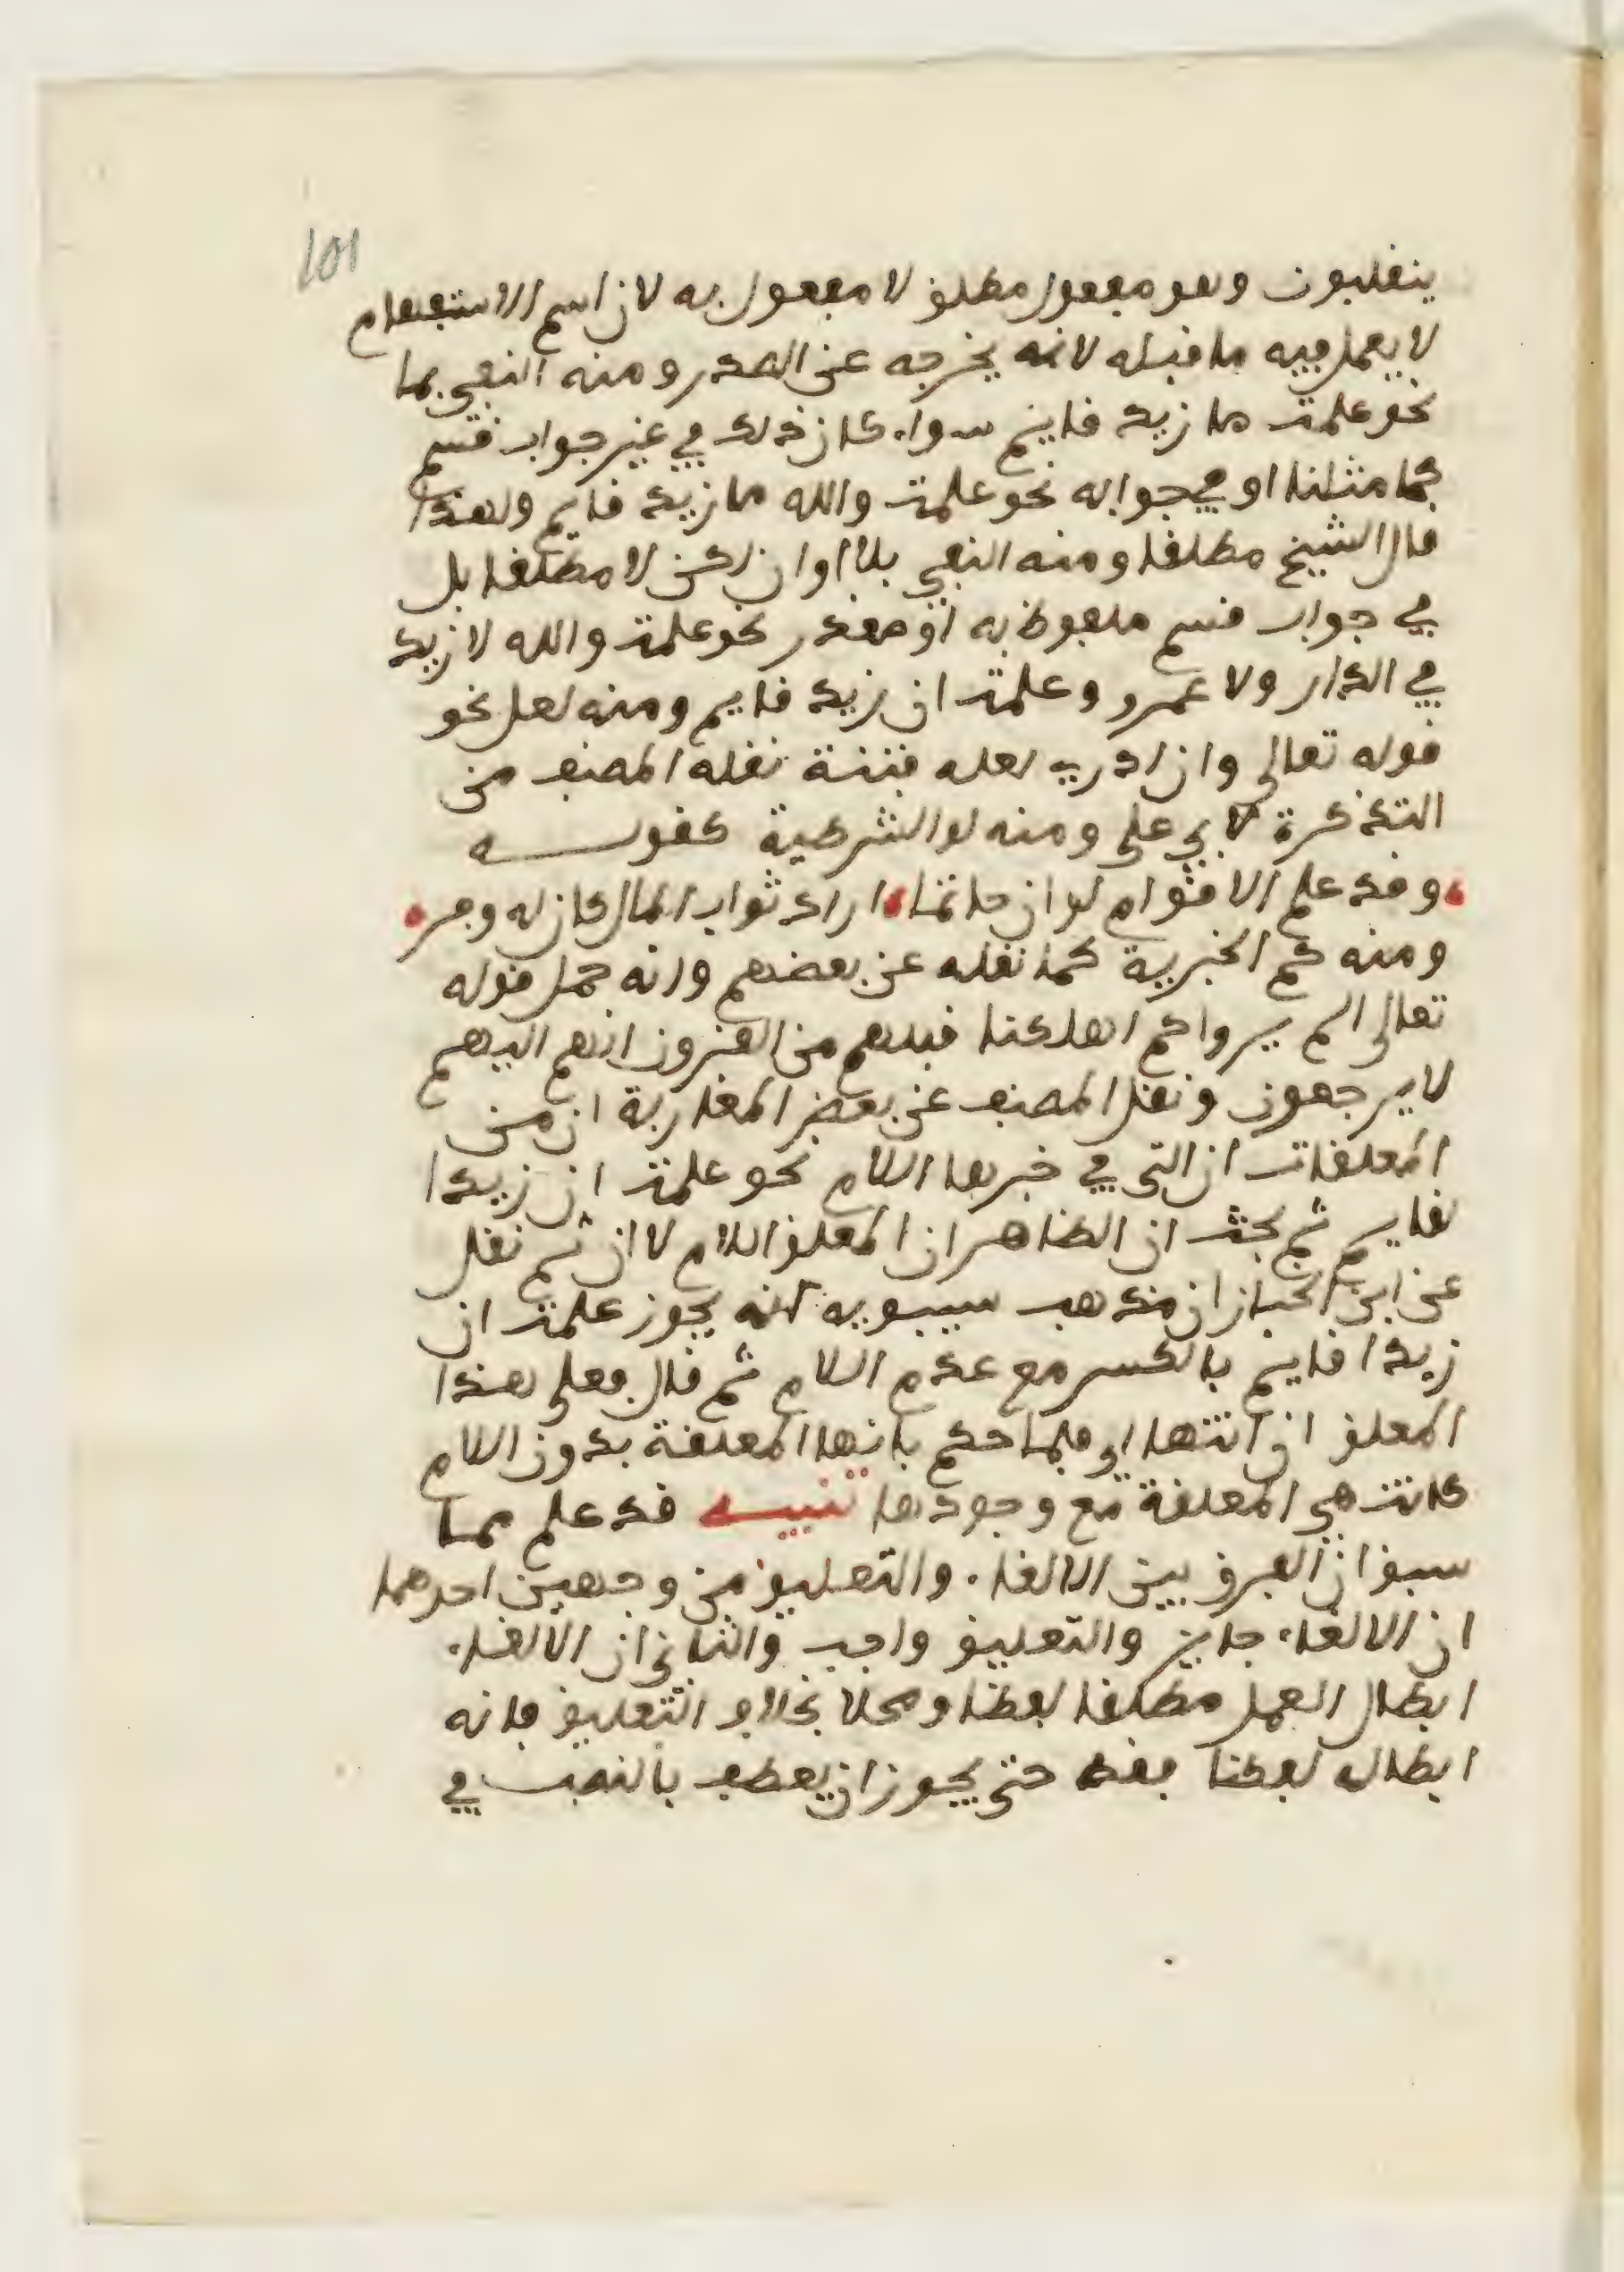 101
ينقلبون وهو مفعول مطلق لا مفعول به لان اسم الاستفهام
لا يعمل فيه ما قبله لانه يخرجه عن الصدر ومنه النفي بما
نحو علمت ما زيد قايم سواء كان ذلك في غير جواب قسم
كما مثلنا او في جوابه نحو علمت والله ما زيد قايم ولهذا
قال الشيخ مطلقا ومنه النفي بلا او ان لكن لا مطلقا بل
في جواب قسم ملفوظ به او مقدر نحو علمت والله لا زيد
في الدار ولا عمرو وعلمت ان زيد قايم ومنه لعل نحو
قوله تعالى وان ادري لعله فتنة نقله المصنف من
التذكرة لابي علي ومنه لو الشرطية كقوله
وقد علم الاقوام لو ان حاتما اراد ثواب المال كان له وفر
ومنه كم الخبرية كما نقله عن بعضهم وانه حمل قوله
تعالى الم يروا كم اهلكنا قبلهم من القرون انهم اليهم
لا يرجعون ونقل المصنف عن بعض المغاربة ان من
المعلقات ان التي في خبرها اللام نحو علمت ان زيدا
لقايم ثم بحث ان الظاهر ان المعلق اللام لا ان ثم نقل
عن ابن الخباز ان مذهب سيبويه انه يجوز علمت ان
زيدا قايم بالكسر مع عدم اللام ثم قال فعلى هذا
المعلق ان انتهى اي فلما حكم بانها المعلقة بدون اللام
كانت هي المعلقة مع وجودها تنبيه قد علم مما
سبق ان الفرق بين الالغاء والتعليق من وجهين احدهما
ان الالغاء جايز والتعليق واجب والثاني ان الالغاء
ابطال العمل مطلقا لفظا ومحلا بخلاف التعليق فانه
ابطال لفظا فقط حتى يجوز ان يعطف بالنصب في